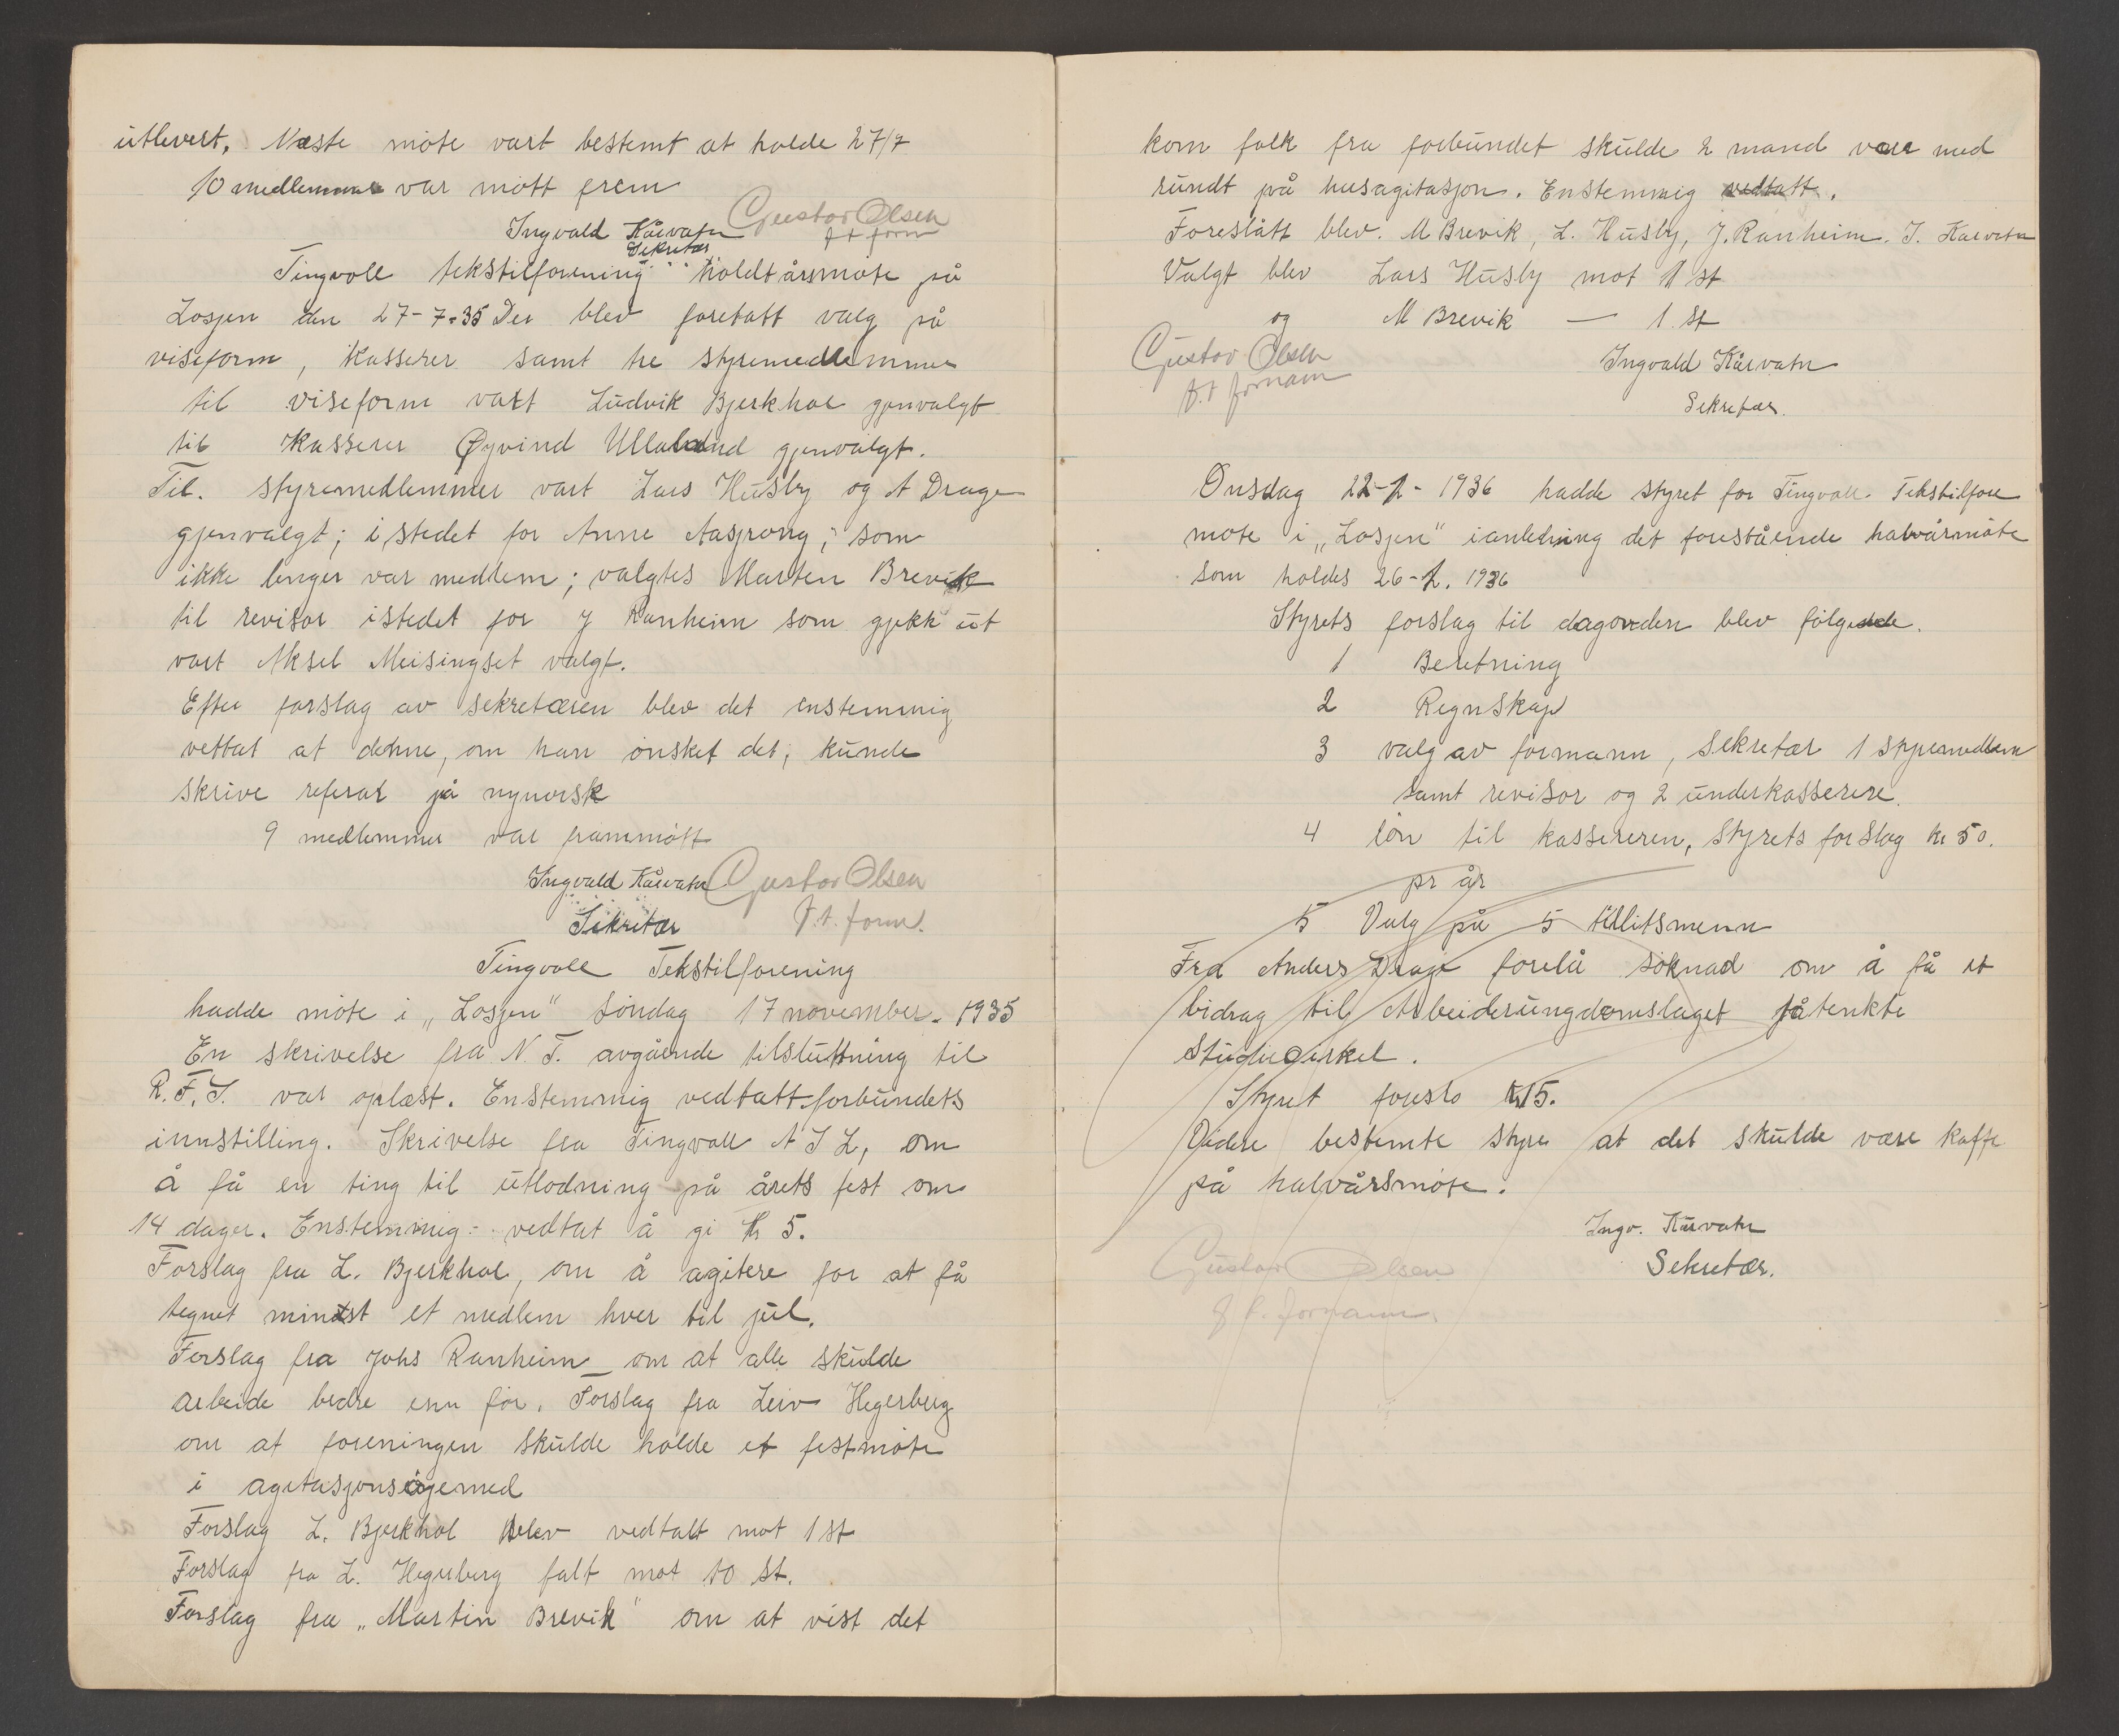 utlevert. Næste møte vart bestemt at holde 27/7
10 medlemmer var møtt frem
Ingvald Kårvatn Gustav Olsen
Sekretær f t form
Tingvoll tekstilforening holdt årsmøte på
Losjen den 27-7-35 Der blev foretatt valg på
viseform, Kasserer samt tre styremedlemmer
til viseform vart Ludvik Bjerkhol gjenvalgt
til Kasserer Øyvind Ulleland gjenvalgt.
Til. styremedlemmer vart Lars Husby og A Drage
gjenvalgt; i stedet for Anne Aasprong; som
ikke lenger var medlem; valgtes Marten Brevik
til revisor istedet for J Ranheim som gjekk ut
vart Aksel Meisingset valgt.
Efter forslag av sekretæren blev det enstemmig
vettat at denne, om han ønsket det; kunde
skrive referat på nynorsk
9 medlemmer var frammøtt
Ingvald Kårvatn Gustav Olsen
Sekretær f.t. form.
Tingvoll Tekstilforening
hadde møte i „Losjen" søndag 17 november. 1935
En skrivelse fra N.T. avgående tilsluttning til
R.F.S. var oplæst. Enstemmig vedtatt forbundets
innstilling. Skrivelse fra Tingvoll A I L, om
å få en ting til utlodning på årets fest om
14 dager. Enstemmig vedtat å gi kr 5.
Forslag fra L. Bjerkhol, om å agitere for at få
tegnet mindst et medlem hver til jul.
Forslag fra Johs Ranheim om at alle skulde
arbeide bedre enn før. Forslag fra Leiv Hegerberg
om at foreningen skulde holde et festmøte
i agitasjonsøyemed
Forslag L. Bjerkhol blev vedtatt mot 1 st
Forslag fra L. Hegerberg falt mot 10 st.
Forslag fra „Martin Brevik" om at vist det
kom folk fra forbundet skulde 2 mand være med
rundt på husagitasjon. Enstemmig vedtatt.
Foreslått blev. M Brevik, L. Husby, J. Ranheim. I. Kårvatn
Valgt blev Lars Husby mot 1 st
og M Brevik — 1. st
Gustav Olsen Ingvald Kårvatn
f.t formann Sekretær.
Onsdag 22-1- 1936 hadde styret for Tingvoll Tekstilfore
møte i „Losjen" ianledning det forestående halvårmøte
som holdes 26-1. 1936
Styrets forslag til dagorden blev følgende.
1 Beretning
2 Regnskap
3 valg av formann, sekretær 1 styremedlem
samt revisor og 2 underkasserere.
4 løn til kassereren, styrets forslag kr 50.
pr år
5 Valg på 5 tillitsmenn
Fra Anders Drage forelå søknad om å få et
bidrag til Arbeiderungdomslaget påtenkte
Studiecirkel.
Styret foreslo kr 15.
Videre bestemte styre at det skulde være kaffe
på halvårsmøte.
Ingv. Kårvatn
Gustav Olsen Sekretær.
f t. formann.